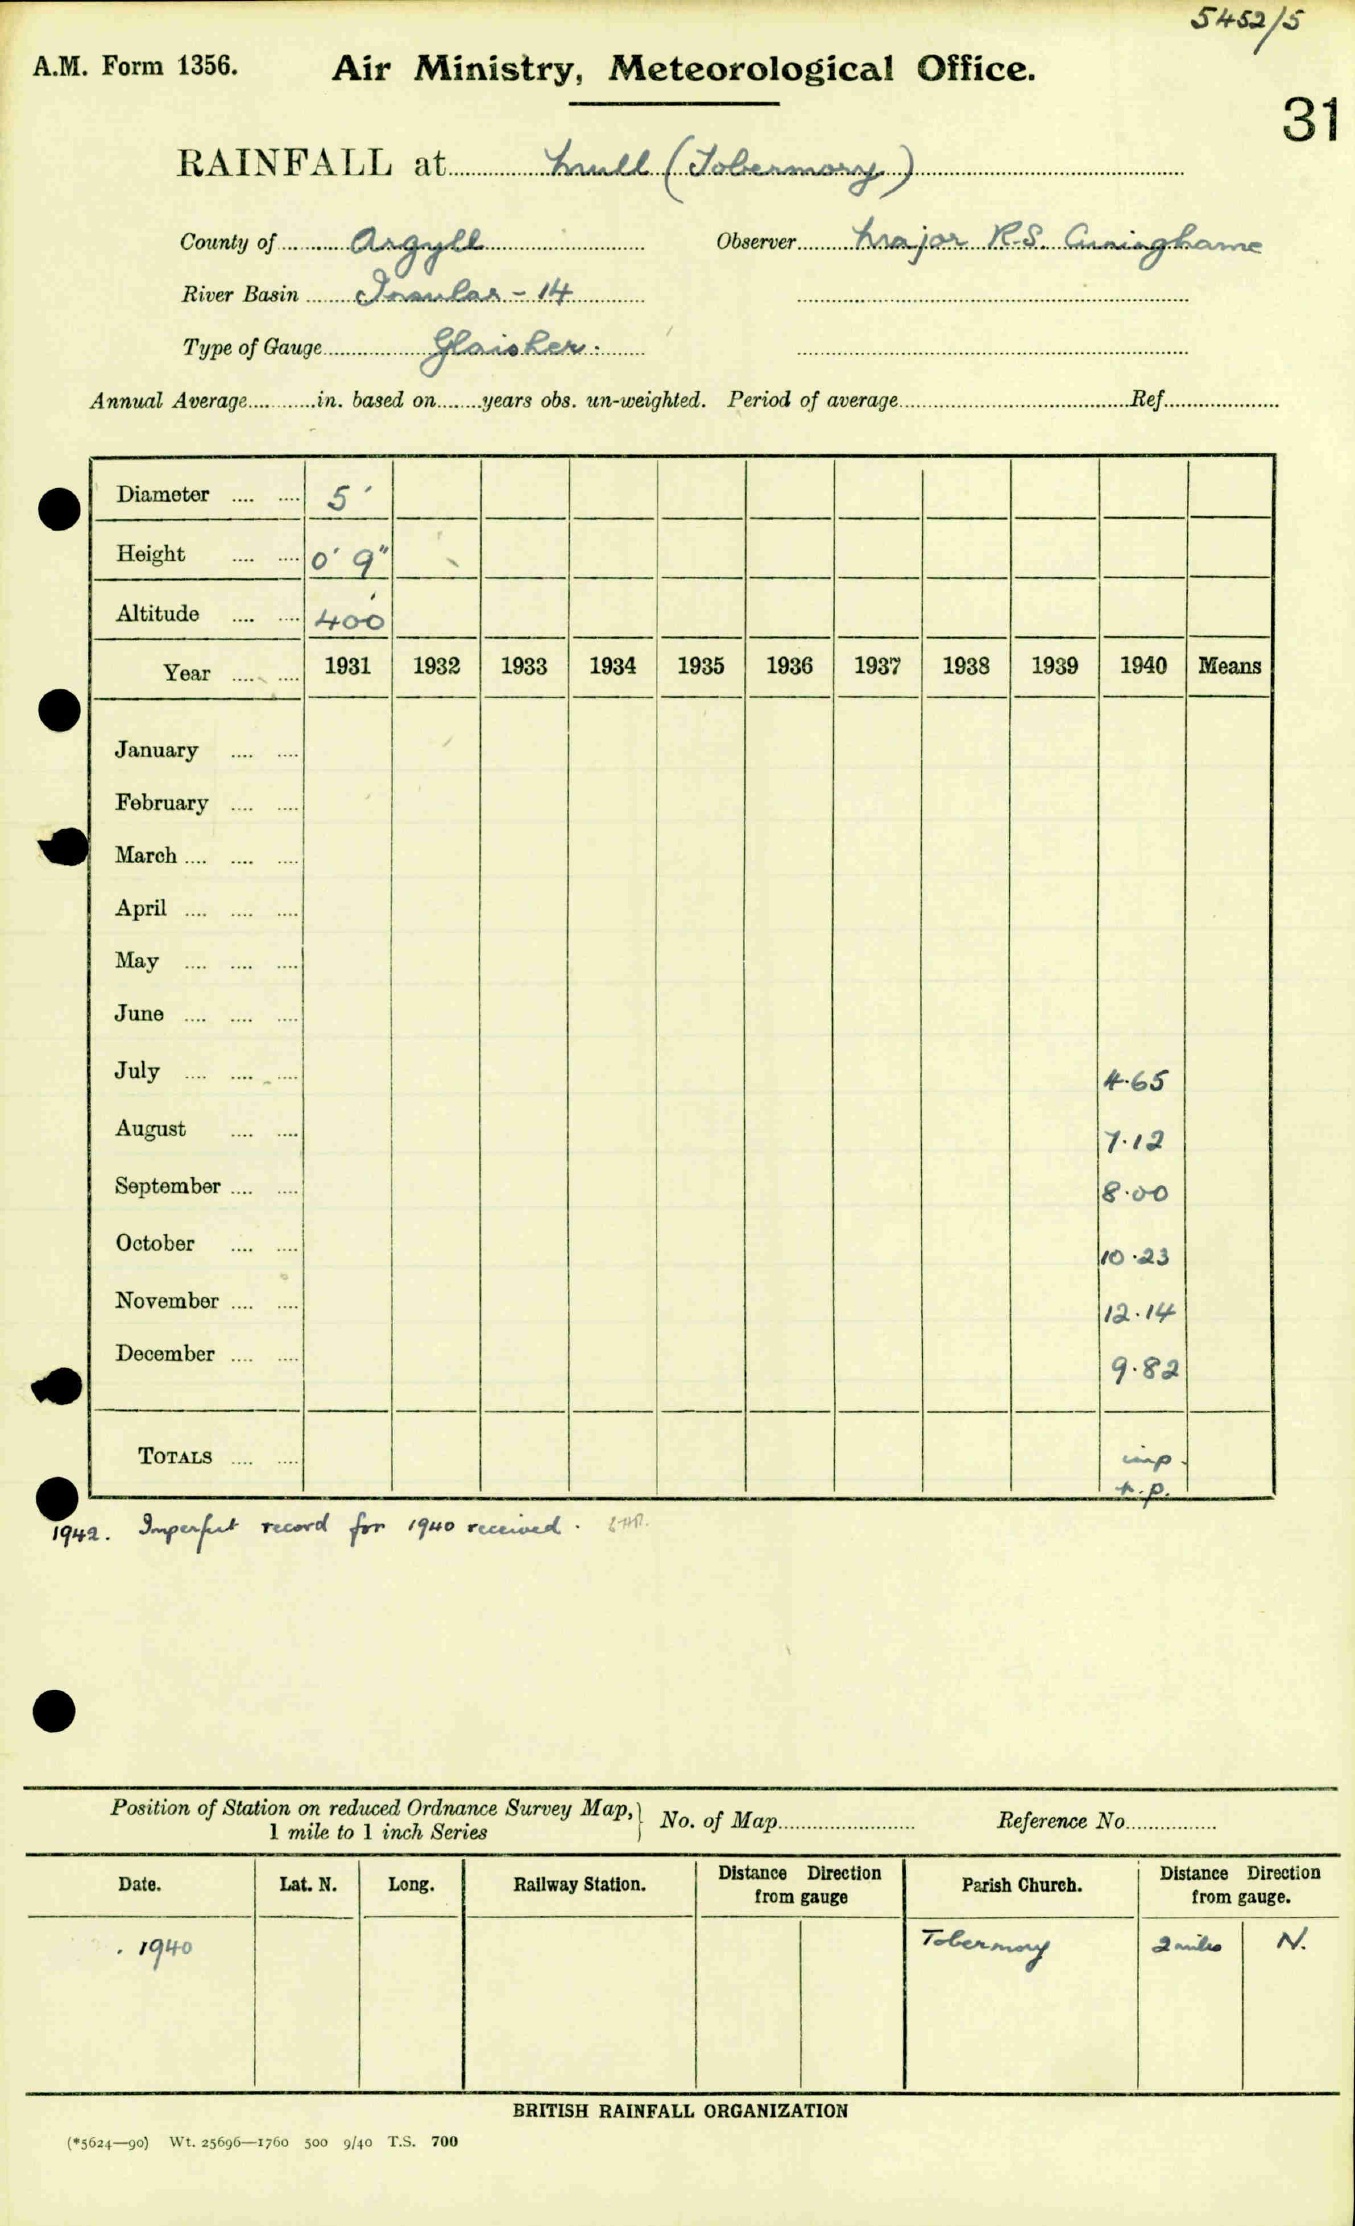 5452/5
A.M. Form 1356. Air Ministry, Meteorological Office.
31
RAINFALL at Mull (Tobermory)
County of Argyll Observer Major R.S. Cuninghame
River Basin Insular - 14
Type of Gauge Glaisher.
Annual Average in. based on years obs. un-weighted. Period of average Ref.
Diameter 5"
Height 0' 9"
Altitude 400'
Year 1931 1932 1933 1934 1935 1936 1937 1938 1939 1940 Means
January
February
March
April
May
June
July 4.65
August 7.12
September 8.00
October 10.23
November 12.14
December 9.82
TOTALS imp.
n.p.
1942. Imperfect record for 1940 received.
Position of Station on reduced Ordnance Survey Map, } No. of Map Reference No.
1 mile to 1 inch Series
Date. Lat. N. Long. Railway Station. Distance Direction from gauge Parish Church. Distance Direction from gauge.
1940 Tobermory 2 miles N.
BRITISH RAINFALL ORGANIZATION
(*5624—90) Wt. 25696—1760 500 9/40 T.S. 700